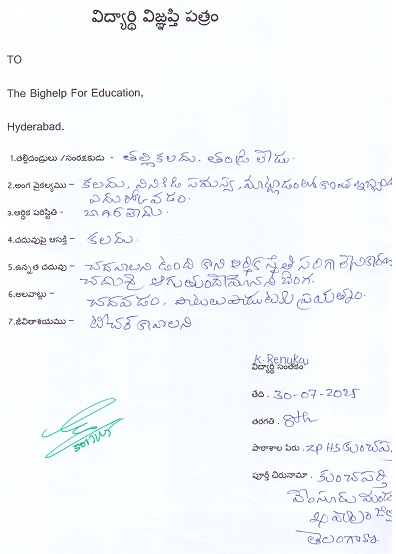 విద్యార్థి విజ్ఞప్తి పత్రం
TO
The Bighelp For Education,
Hyderabad.
1.తల్లిదండ్రులు /సంరక్షకుడు - తల్లి కలదు. తండ్రి లేడు.
2.అంగ వైకల్యము - కలదు, వినికిడి సమస్య, మాట్లాడంలో కొంత ఇబ్బంది
ఎదుర్కోవడం.
3.ఆర్థిక పరిస్థితి - బాగా లేదు
4.చదువుపై ఆసక్తి - కలదు.
5.ఉన్నత చదువు - చదవాలని ఉంది కాని ఆర్థిక స్థితి సరిగా లేని
చదువు ఆగుతుందేమోనని బెంగ.
6.అలవాట్లు - చదవడం, పాటలు పాడుటకు ప్రయత్నం.
7.జీవితాశయము - టీచర్ కావాలని
K. Renuka
విద్యార్థి సంతకం
తేది . 30-07-2025
తరగతి . 8th
పాఠశాల పేరు . ZPHS కుంచప
పూర్తి చిరునామా . కుంచపర్తి
వేంసూరు మండ
ఖమ్మం జిల్లా
తెలంగాణ.